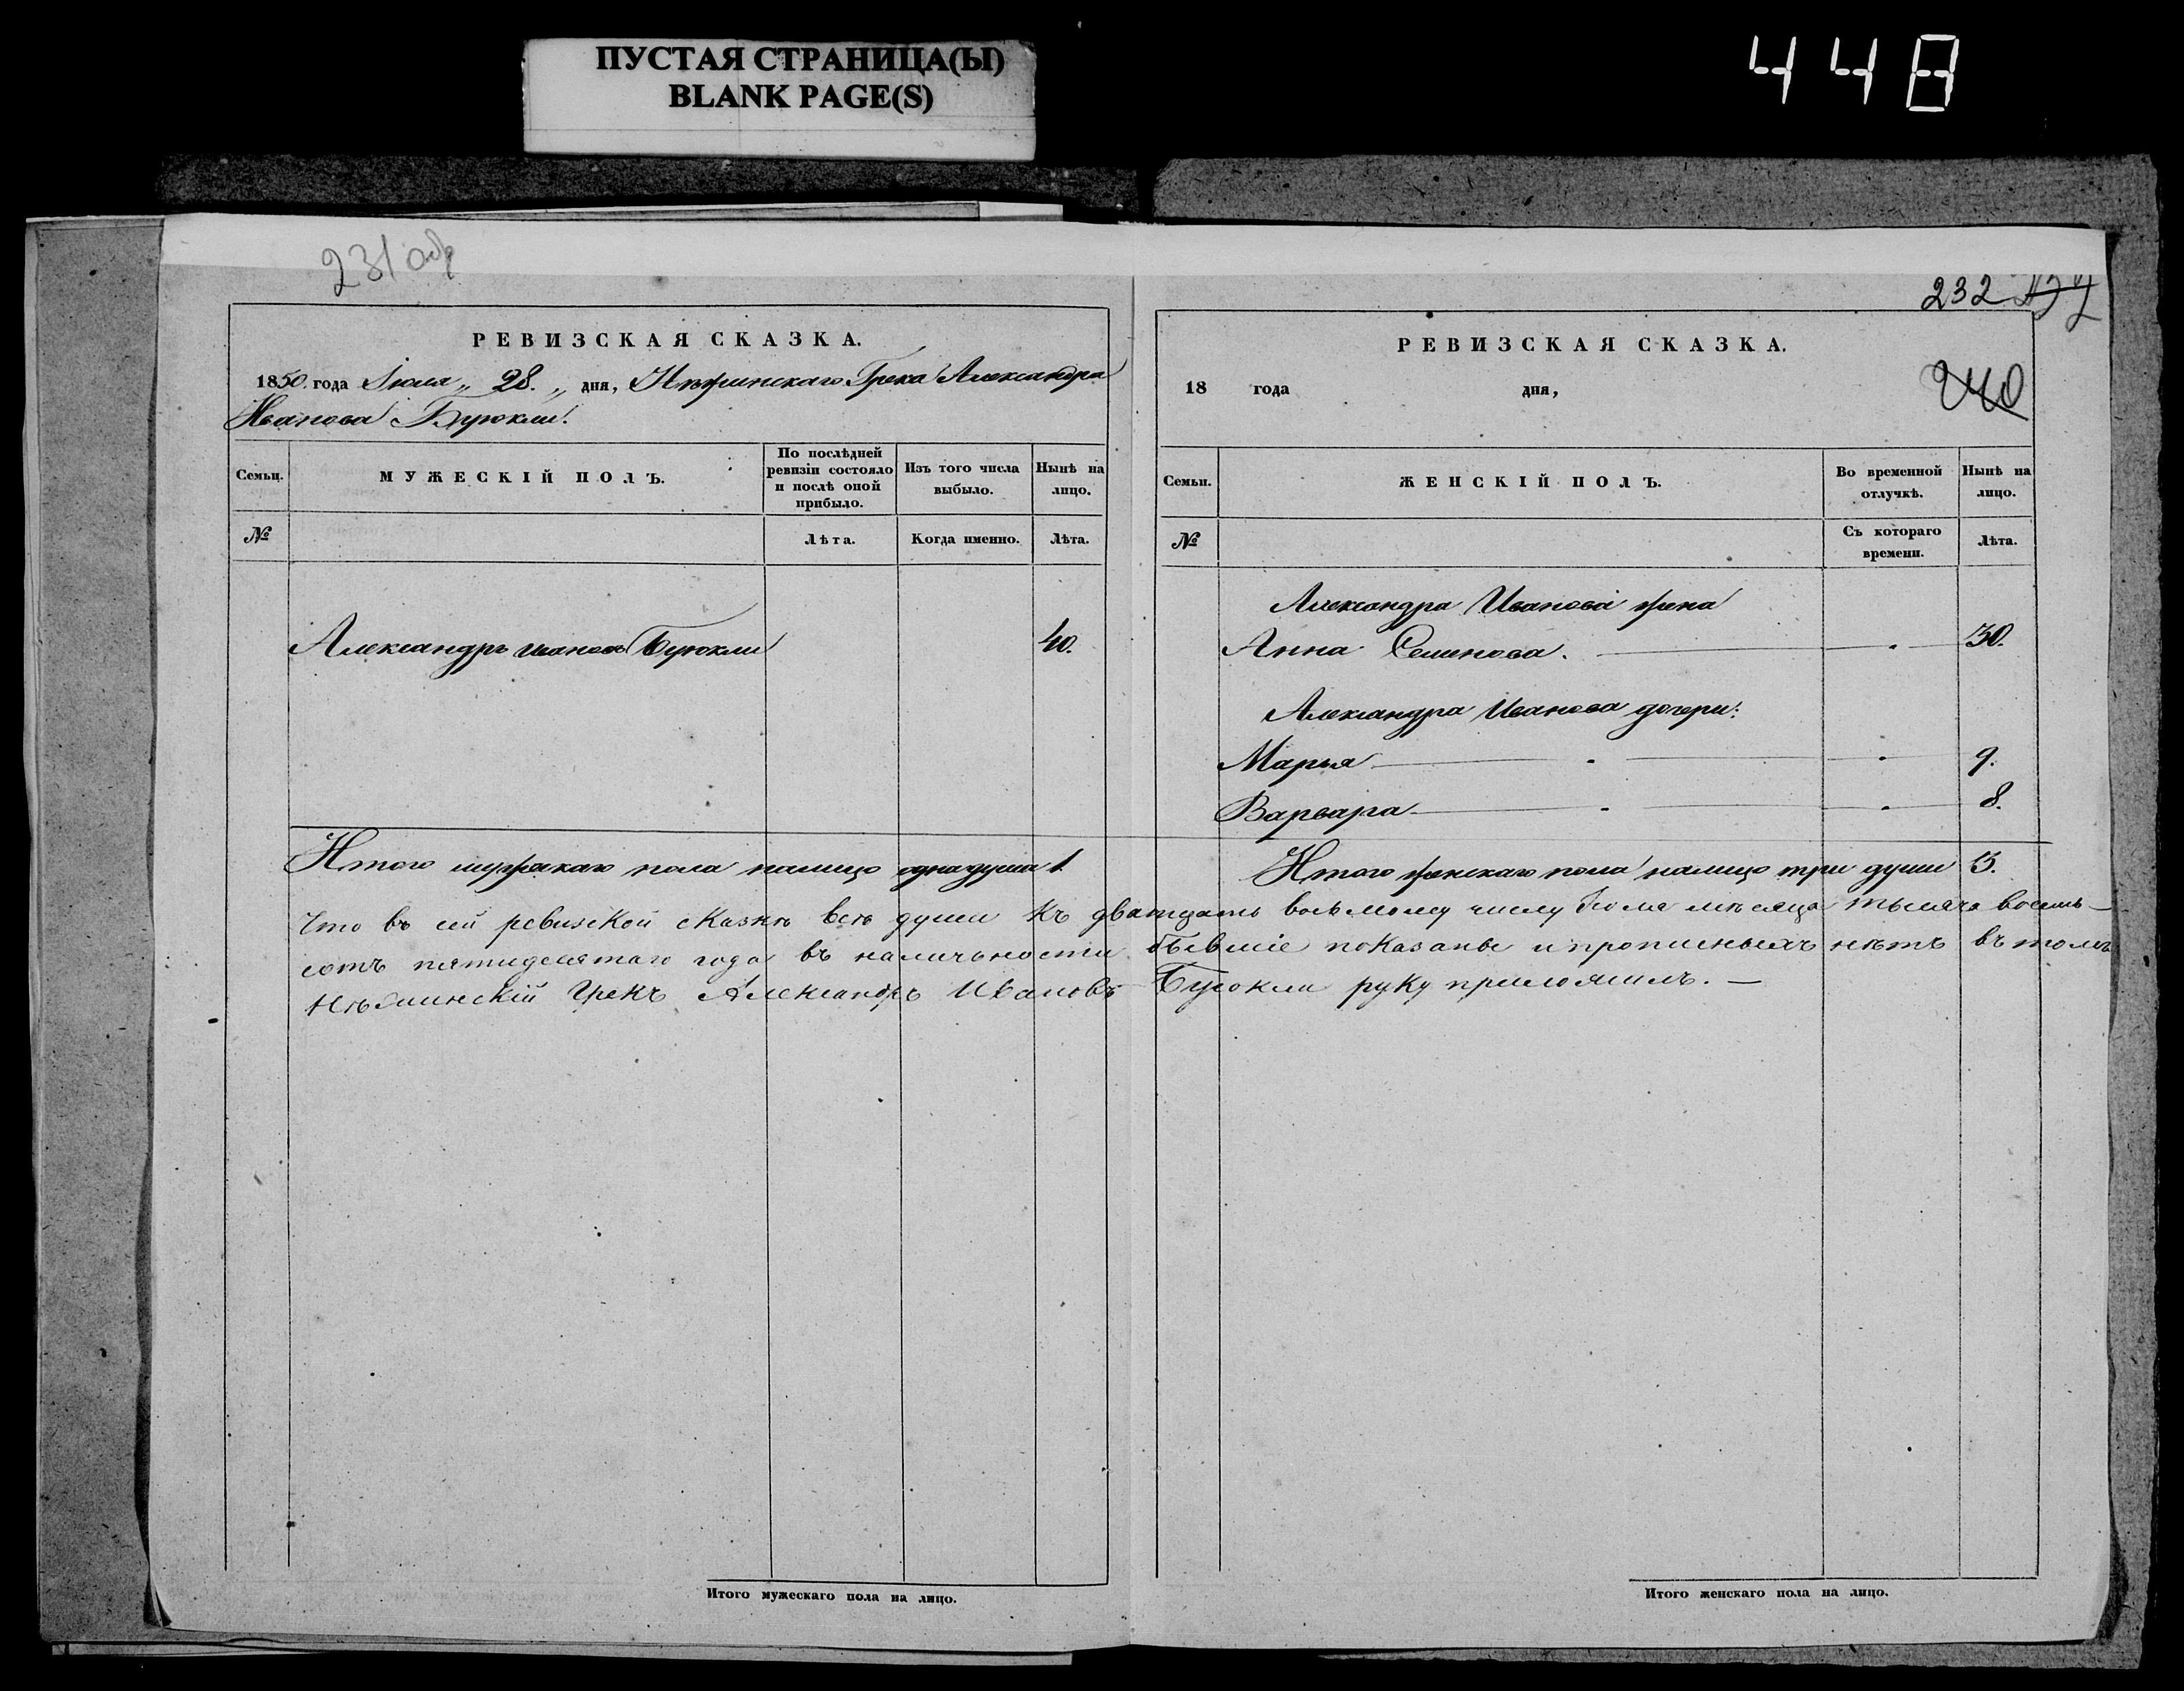 ПУСТАЯ СТРАНИЦА(Ы)
BLANK PAGE(S)
448
231 об
РЕВИЗСКАЯ СКАЗКА.
1850. года Іюля „ 28. „ дня, Нѣжинскаго Грека Александра
Иванова Буюкли.
Семьи.
МУЖЕСКІЙ ПОЛЪ.
По послѣдней
ревизіи состояло
и послѣ оной
прибыло.
Изъ того числа
выбыло.
Нынѣ на
лицо.
№
Лѣта.
Когда именно.
Лѣта.
Александръ Иванов Буюкли 40.
Итого мужскаго пола налицо одна душа 1.
232
240
РЕВИЗСКАЯ СКАЗКА.
18 года дня,
Семьи.
ЖЕНСКІЙ ПОЛЪ.
Во временной
отлучкѣ.
Нынѣ на
лицо.
№
Съ котораго
времени.
Лѣта.
Александра Иванова жена
Анна Семенова. 30.
Александра Иванова дочери:
Марья 9.
Варвара 8.
Итого женскаго пола налицо три души 3.
Что въ сей ревизкой сказкѣ всѣ души къ дватцать восьмому числу Іюля мѣсяца тысяча восемь-
сотъ пятидесятаго года въ наличьности бывшіе показаны и прописныхъ нѣтъ въ томъ
Нѣжинскій Грекъ Александръ Ивановъ Буюкли руку приложилъ. —
Итого мужескаго пола на лицо.
Итого женскаго пола на лицо.